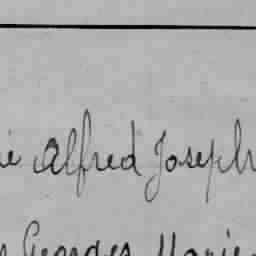 Alfred Joseph
Georges Marie